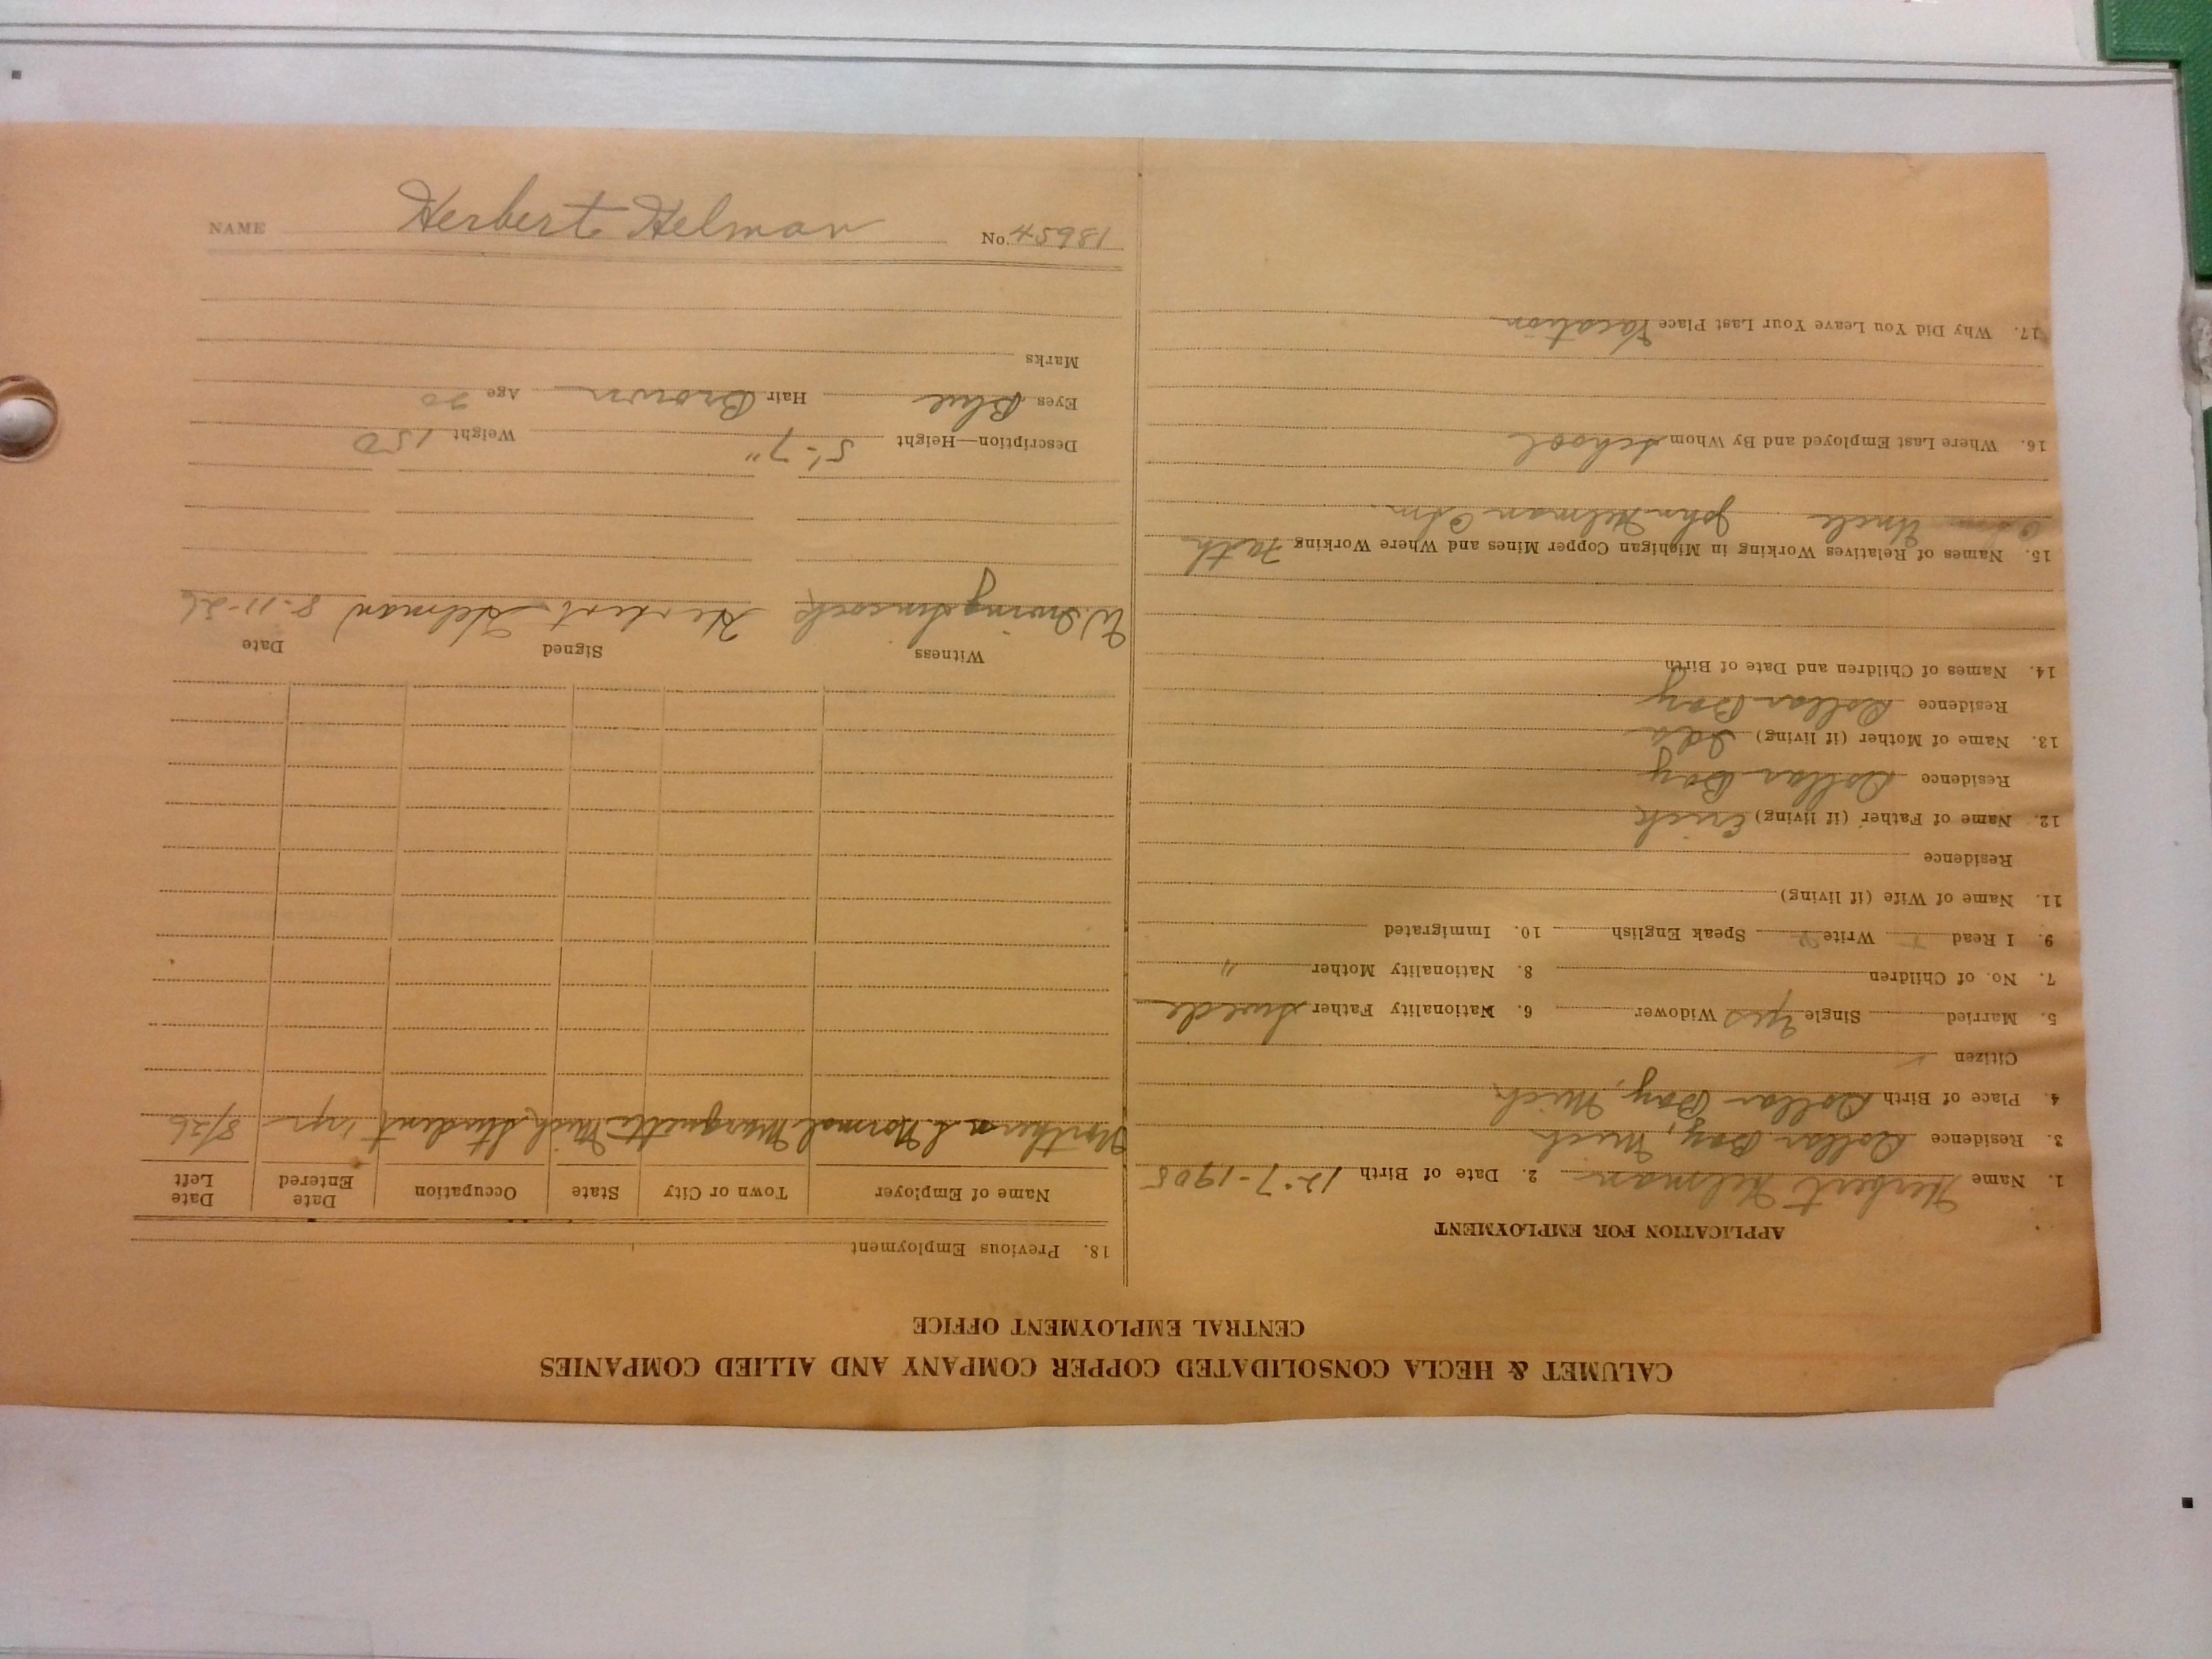 CALUMET & HECLA CONSOLIDATED COPPER COMPANY AND ALLIED COMPANIES
CENTRAL EMPLOYMENT OFFICE
APPLICATION FOR EMPLOYMENT
1. Name Herbert Helman 2. Date of Birth 12-7-1905
3. Residence Dollar Bay, Mich
4. Place of Birth Dollar Bay, Mich
Citizen
5. Married Single Yes Widower 6. Nationality Father Swede
7. No. of Children 8. Nationality Mother "
9. I Read Write Speak English 10. Immigrated
11. Name of Wife (if living)
Residence
12. Name of Father (if living) Erick
Residence Dollar Bay
13. Name of Mother (if living) Ida
Residence Dollar Bay
14. Names of Children and Date of Birth
15. Names of Relatives Working in Mihigan Copper Mines and Where Working Fath
Uncle John Helman
16. Where Last Employed and By Whom School
17. Why Did You Leave Your Last Place Vacation
18. Previous Employment
Name of Employer Town or City State Occupation Date Entered Date Left
Northern S. Normal Marquette Mich Student 1 yr 8/26
Witness Signed Date
W. Irving Herbert Helman 8-11-26
Description—Height 5'-7" Weight 150
Eyes Blue Hair Brown Age 20
Marks
NAME Herbert Helman No. 45981